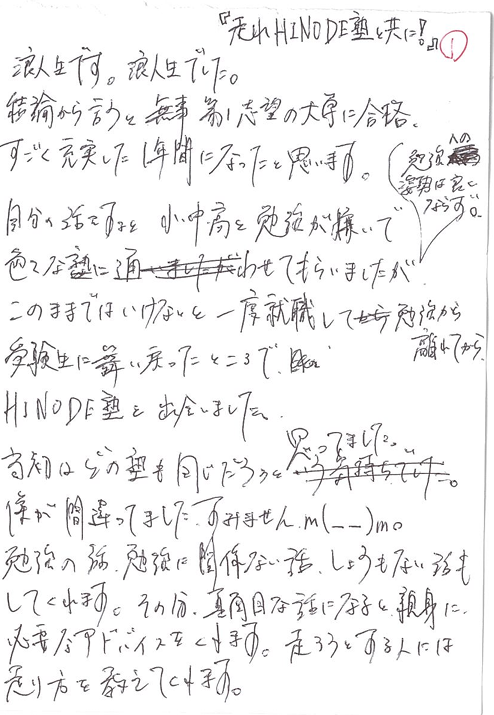 『走れHINODE塾と共に!』①
浪人生です。浪人生でした。
結論から言うと無事第1志望の大学に合格、
すごく充実した1年間になったと思います。
勉強への
姿勢は良く
ならず。
自分の話ですると小中高と勉強が嫌いで
色々な塾に通わせてもらいましたが
このままではいけないと一度就職して勉強から
離れてから、
受験生に舞い戻ったところで、
HINODE塾と出会いました。
当初はどの塾も同じだろうと思ってました。
僕が間違ってました。すみません。m(__)m。
勉強の話、勉強に関係ない話、しょうもない話も
してくれます。その分、真面目な話になると親身に
必要なアドバイスをくれます。走ろうとする人には
走り方を教えてくれます。